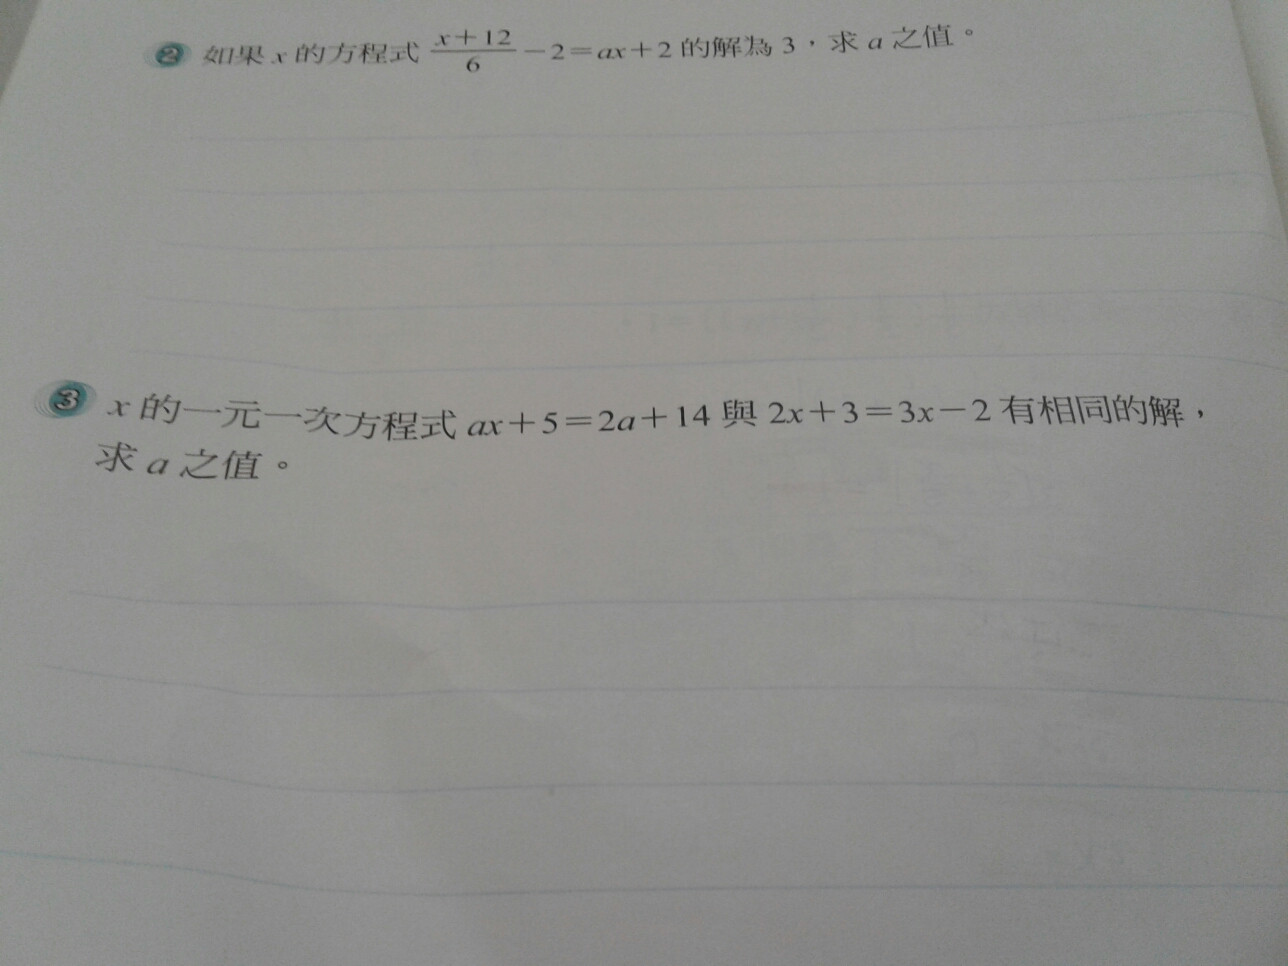 ② 如果 x 的方程式 \frac{x+12}{6}−2=ax+2 的解為 3，求 a 之值。
③ x 的一元一次方程式 ax+5=2a+14 與 2x+3=3x−2 有相同的解，
求 a 之值。